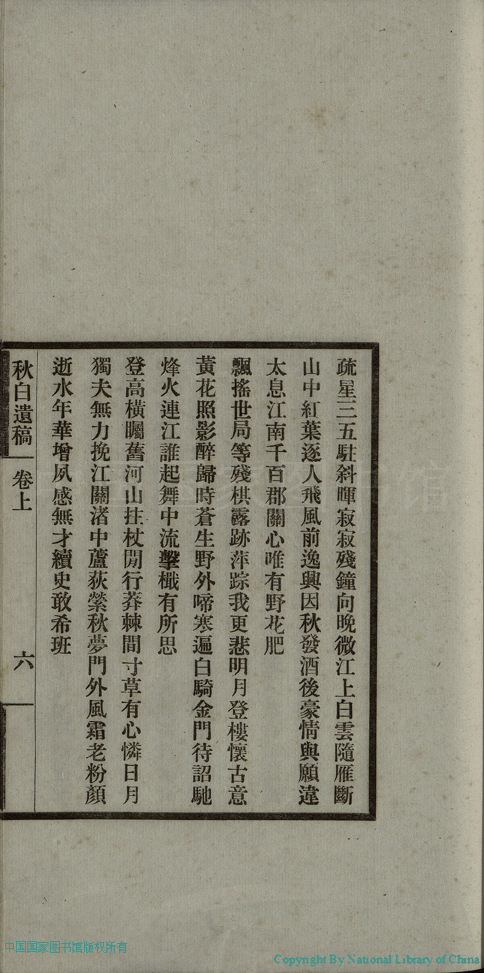 疏星三五駐斜暉寂寂殘鐘向晚微江上白雲隨雁斷
山中紅葉逐人飛風前逸興因秋發酒後豪情與願違
太息江南千百郡關心唯有野花肥
飄搖世局等殘棋露跡萍踪我更悲明月登樓懷古意
黃花照影醉歸時蒼生野外啼寒遍白騎金門待詔馳
烽火連江誰起舞中流擊檝有所思
登高橫矚舊河山拄杖閒行莽棘間寸草有心憐日月
獨夫無力挽江關渚中蘆荻縈秋夢門外風霜老粉顏
逝水年華增夙感無才續史敢希班
秋白遺稿 卷上 六
中国国家图书馆版权所有
Copyright By National Library of China